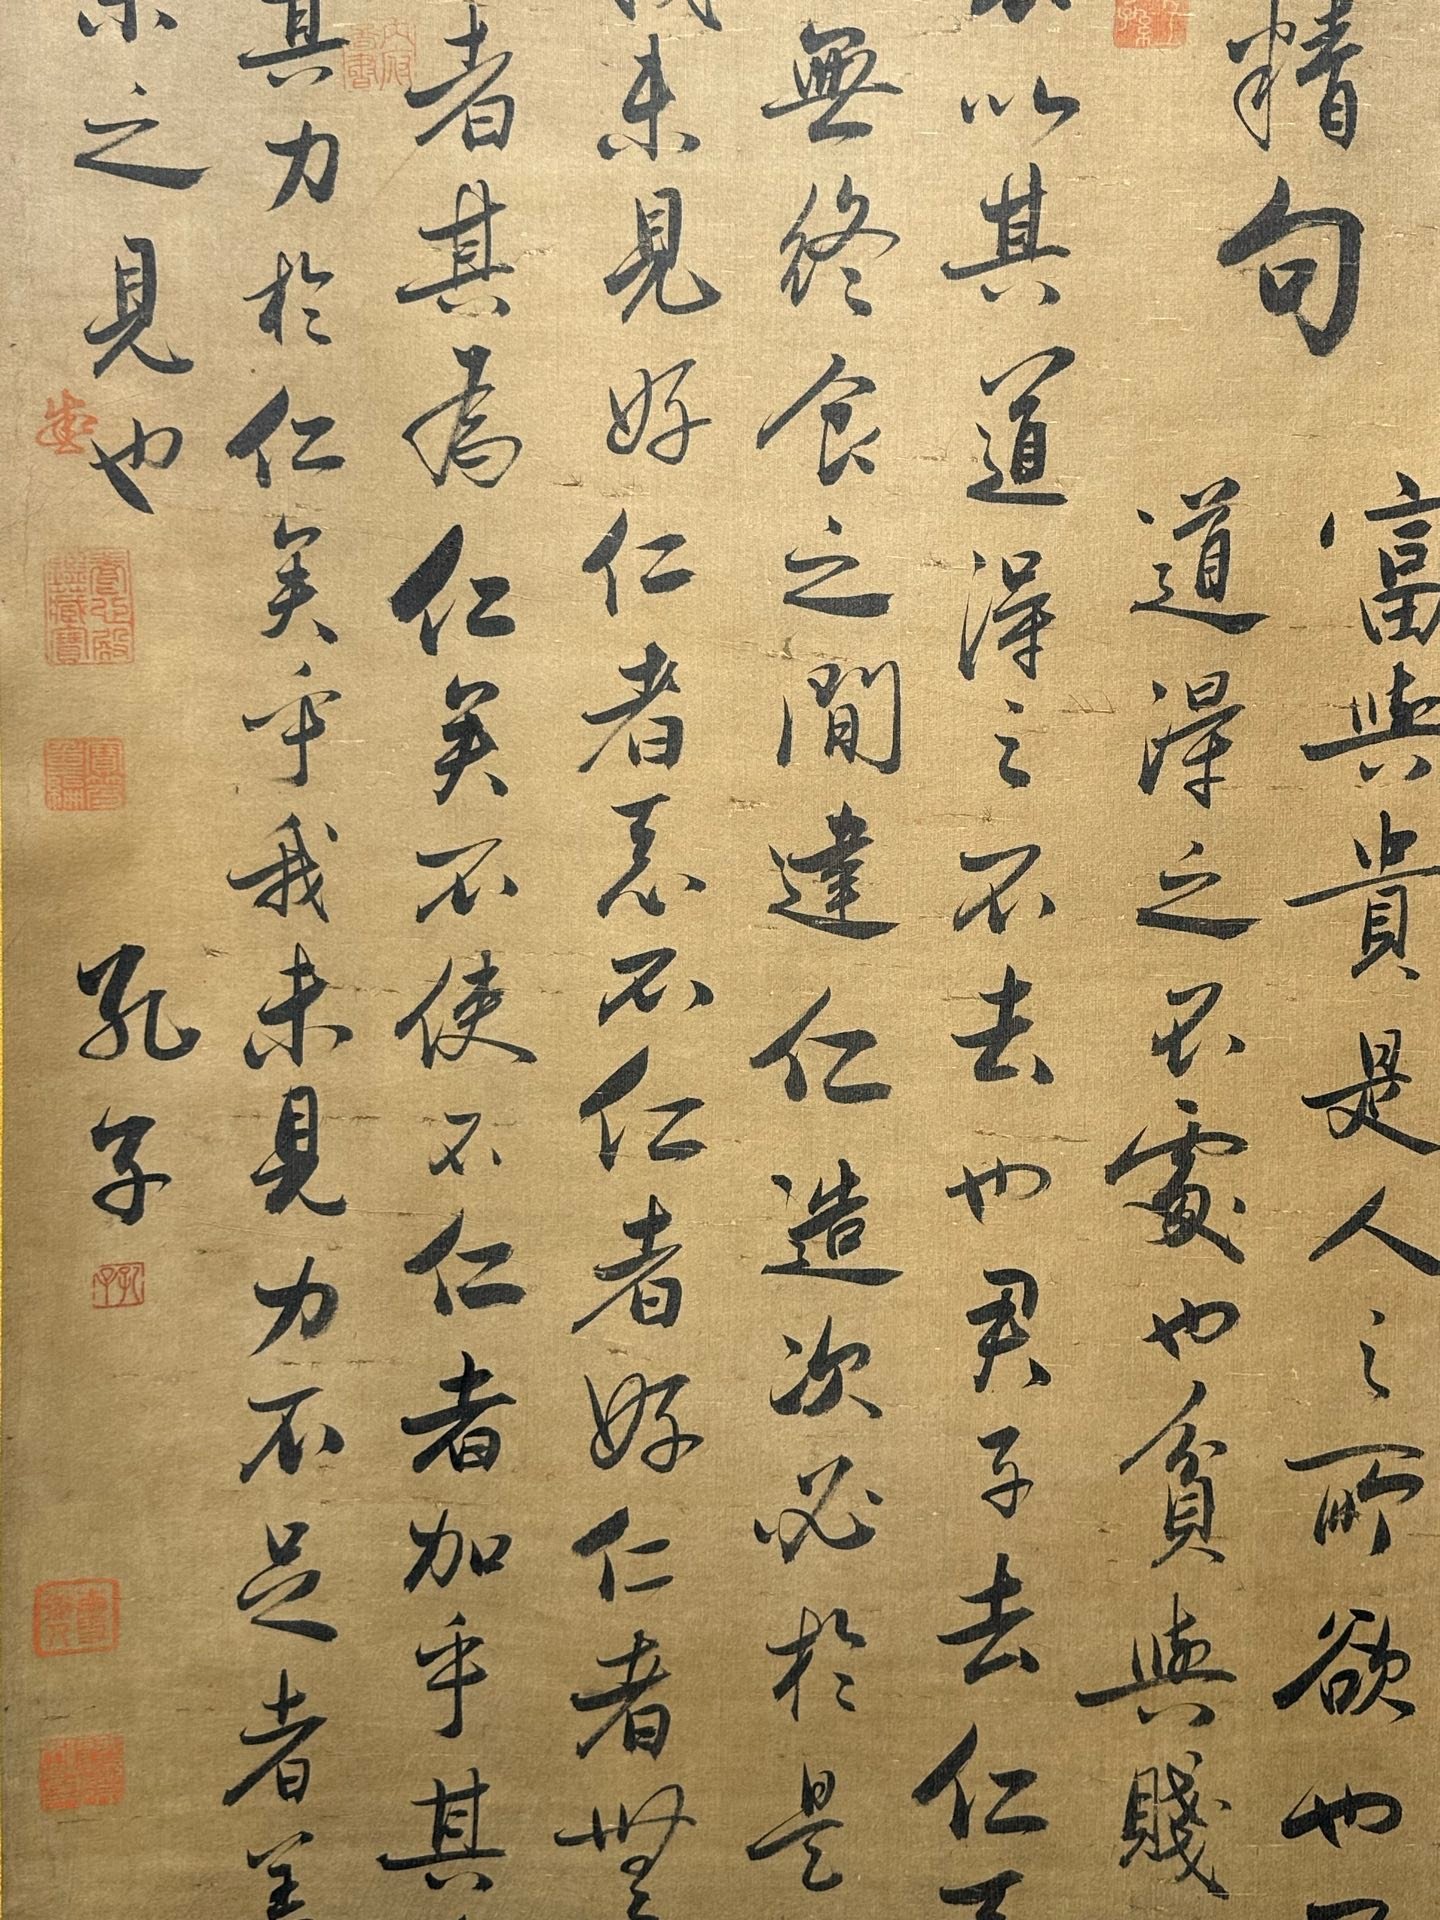 精句
富與貴是人之所欲也
道得之不處也貧與賤
以其道得之不去也君子去仁
無終食之間違仁造次必於是
未見好仁者惡不仁者好仁者無
者其為仁矣不使不仁者加乎其
其力於仁矣乎我未見力不足者蓋
未之見也
孔子
養心殿鑑藏寶